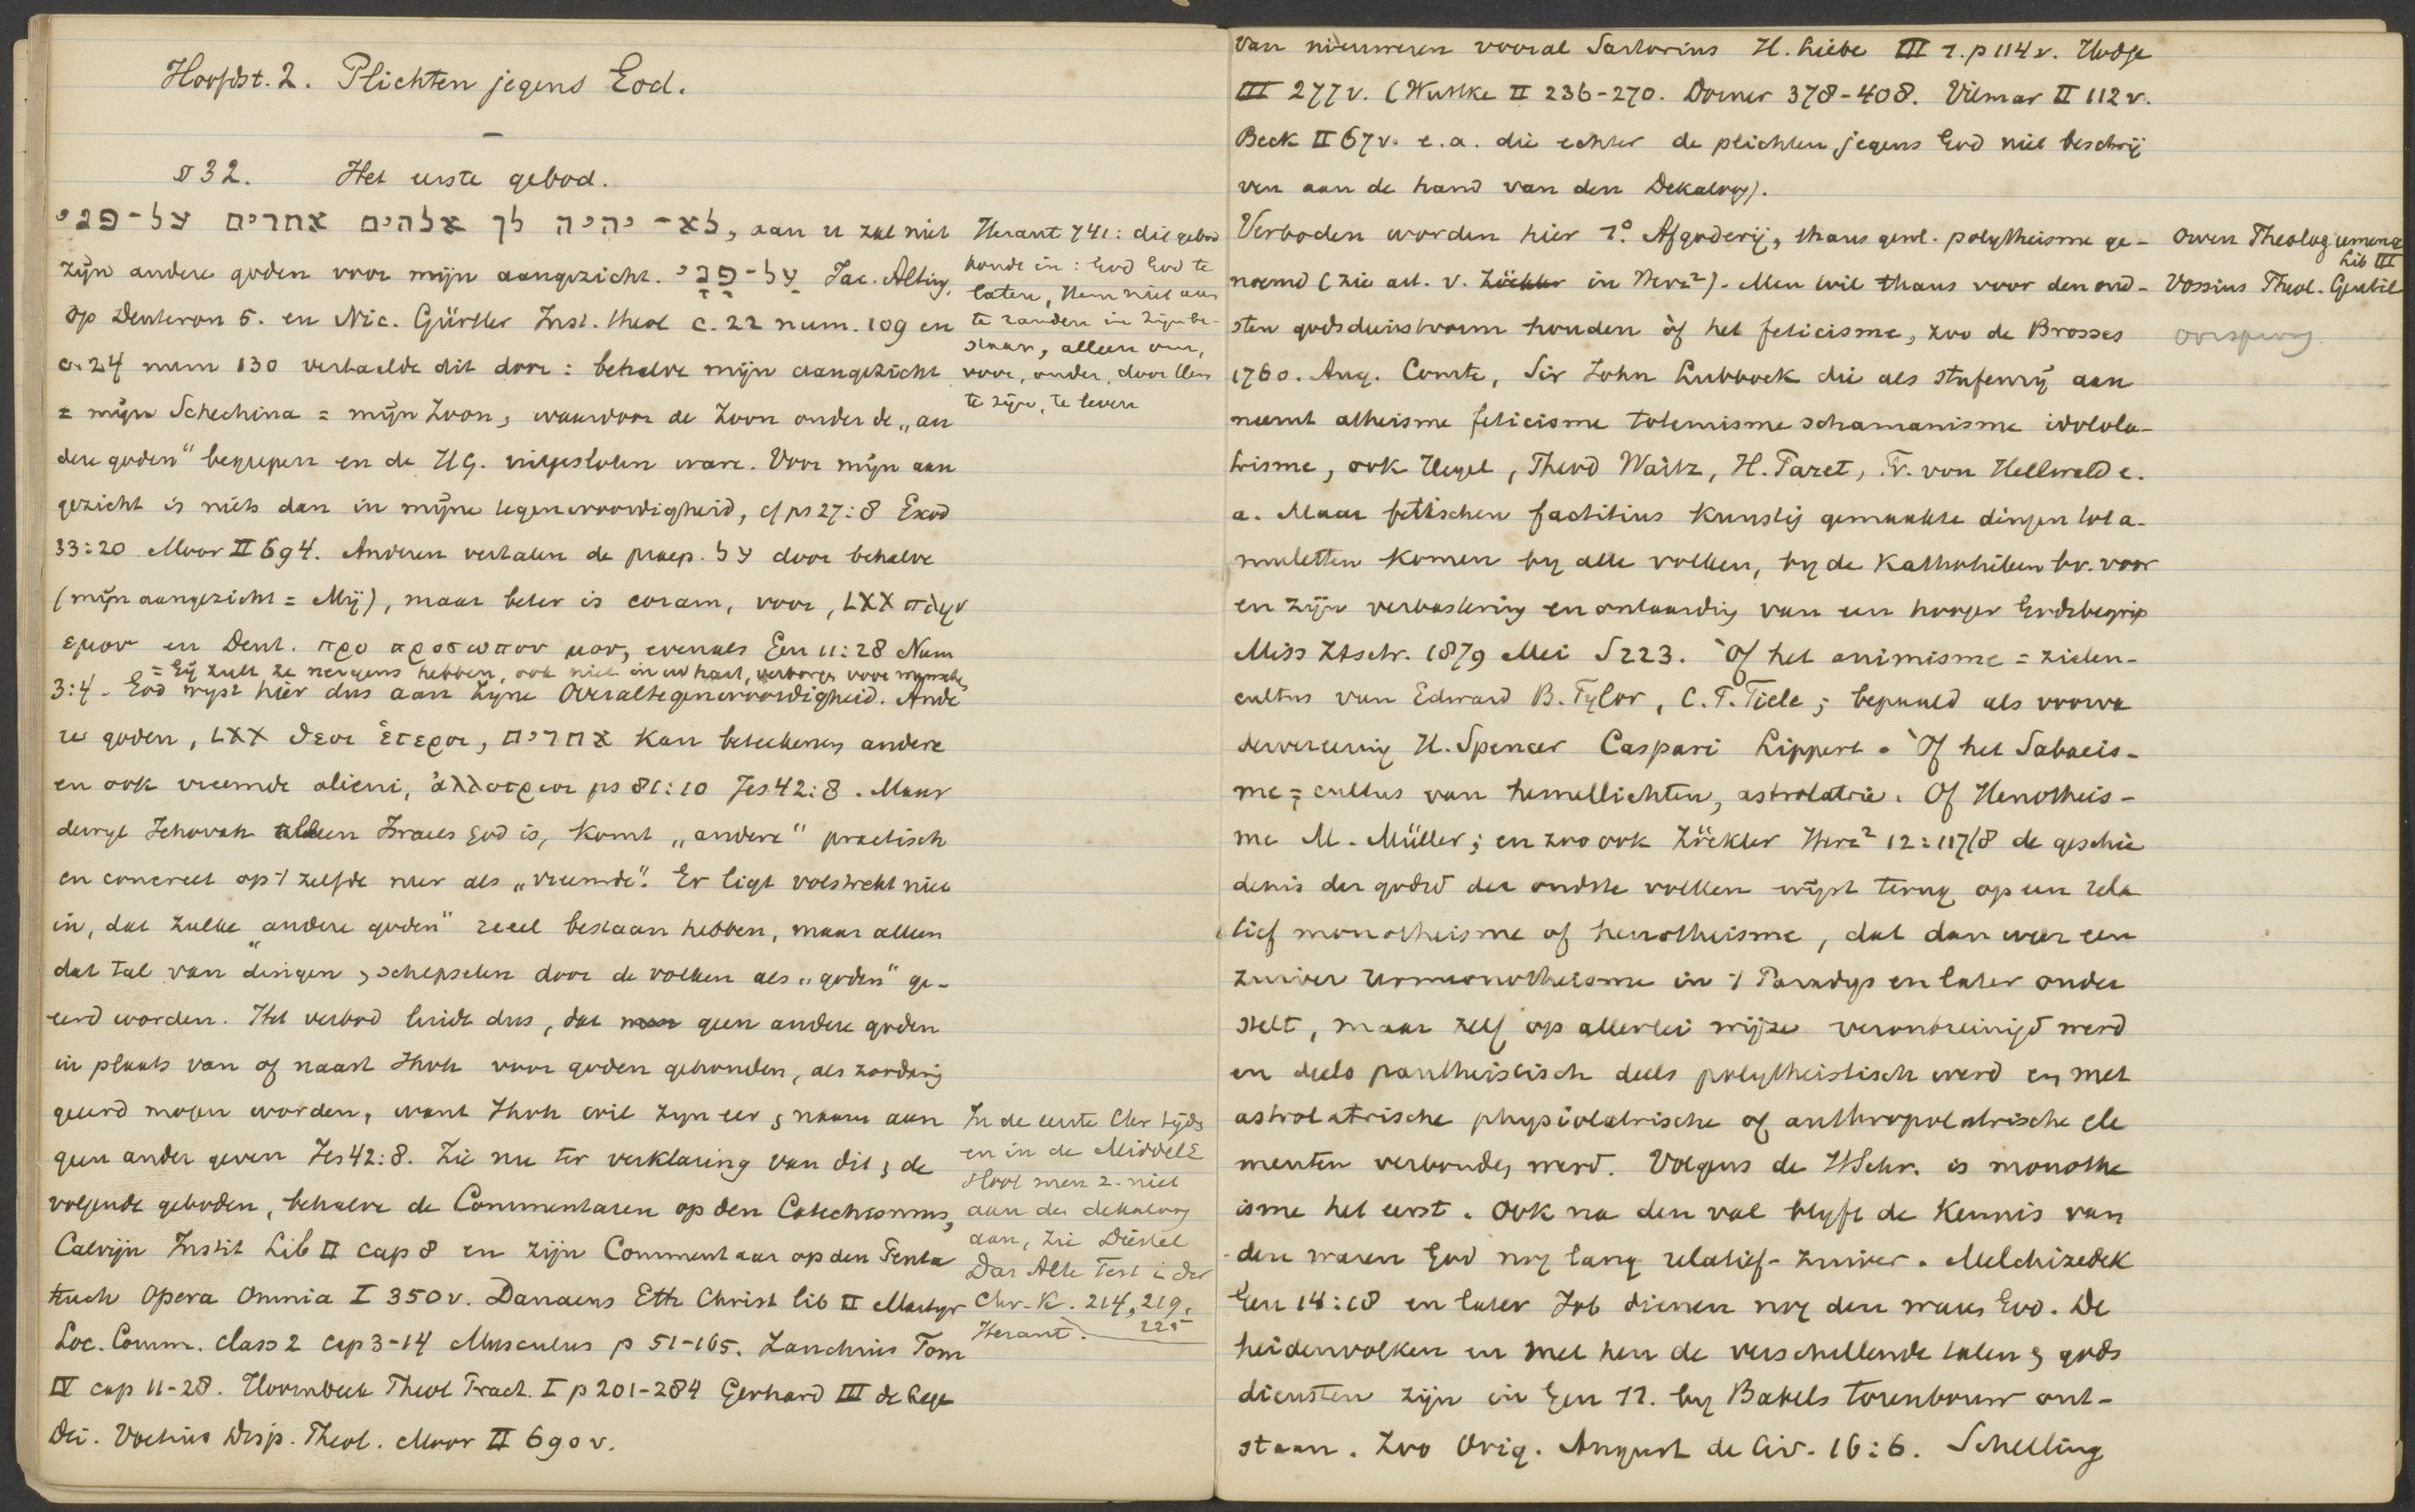 Hoofdst. 2. Plichten jegens God.
§ 32. Het eerste gebod.
לא-יהיה לך אלהים אחרים על-פני, aan u zal niet
zijn andere goden voor mijn aangezicht. על-פני Jac. Alting
op Deuteron 5. en Nic. Gürtler Inst. theol c. 22 num. 109 en
c. 24 num 130 vertaalde dit door: behalve mijn aangezicht
= mijn Schechina = mijn Zoon, waardoor de Zoon onder de „an
dere goden" begrepen en de HG. uitgesloten ware. Voor mijn aan
gezicht is niets dan in mijne tegenwoordigheid, cf ps 27:8 Exod
33:20 Moor II 694. Anderen vertalen de praep. על door behalve
(mijn aangezicht = Mij), maar beter is coram, voor, LXX πλην
εμου en Deut. προ προσωπου μου, evenals Gen 11:28 Num
= Gij zult ze nergens hebben, ook niet in uw hart, verborgen voor menschen
3:4. God wyst hier dus aan Zyne Overaltegenwoordigheid. Ande
re goden, LXX θεοι ἑτεροι, אחרים kan beteekenen andere
en ook vreemde alieni, ἀλλοτριοι ps 81:10 Jes 42:8. Maar
dewyl Jehovah alleen Israels God is, komt „andere" practisch
en concreet op 't zelfde neer als „vreemde". Er ligt volstrekt niet
in, dat zulke „andere goden" reeel bestaan hebben, maar alleen
dat tal van dingen, schepselen door de volken als „goden" ge-
eerd worden. Het verbod luidt dus, dat geen andere goden
in plaats van of naast Jhvh voor goden gehouden, als zoodanig
geeerd mogen worden, want Jhvh wil zyn eer, naam aan
geen ander geven Jes 42:8. Zie nu ter verklaring van dit, de
volgende geboden, behalve de Commentaren op den Catechismus,
Calvijn Instit Lib II cap 8 en zijn Commentaar op den Penta
teuch Opera Omnia I 350 v. Danaeus Eth Christ lib II Martyr
Loc. Comm. class 2 cap 3-14 Musculus p 51-165. Zanchius Tom
IV cap 11-28. Hoornbeek Theol Pract. I p 201-284 Gerhard III de Lege
Dei. Voetius Disp. Theol. Moor II 690 v.
Heraut 741: dit gebod
houdt in: God God te
laten, Hem niet aan
te randen in Zijn be-
staan, alleen om,
voor, onder, door Hem
te zijn, te leven
In de eerste Chr tyds
en in de MiddelE
sloot men z. niet
aan den dekaloog
aan, zie Diestel
Das Alte Test i. der
Chr. K. 214, 219,
225
Heraut.
van nieuweren vooral Sartorius H. Liebe III 1. p 114 v. Hodge
III 277 v. (Wuttke II 236-270. Dorner 378-408. Vilmar II 112 v.
Beck II 67 v. e.a. die echter de plichten jegens God niet beschrij
ven aan de hand van den Dekaloog).
Verboden worden hier 1° Afgoderij, thans gewl. polytheisme ge-
noemd (zie art. v. Zöckler in Herz²). Men wil thans voor den oud-
sten godsdienstvorm houden òf het feticisme, zoo de Brosses
1760. Aug. Comte, Sir John Lubbock die als stufenrij aan
neemt atheisme feticisme totemisme schamanisme idolola-
trisme, ook Hegel, Theod Waitz, H. Pazet, Fr. von Hellwald e.
a. Maar fetischen factitius kunstig gemaakte dingen tot a-
muletten komen by alle volken, by de Katholieken bv. voor
en zijn verbastering en ontaarding van een hooger Godsbegrip
Miss Ztschr. 1879 Mei S 223. Òf het animisme = zielen-
cultus van Edward B. Tylor, C. P. Tiele; bepaald als voorva
dervereering H. Spencer Caspari Lippert. Òf het Sabaeis-
me = cultus van hemellichten, astrolatrie. Of Henotheis-
me M. Müller; en zoo ook Zöckler Herz² 12:117/8 de geschie
denis der godsd der oudste volken wijst terug op een rela
tief monotheisme of henotheisme, dat dan weer een
zuiver urmonotheisme in 't Paradys en later onder
stelt, maar zelf op allerlei wijze verontreinigd werd
en deels pantheistisch deels polytheistisch werd en met
astrolatrische physiolatrische of anthropolatrische ele
menten verbonden werd. Volgens de HSchr. is monothe
isme het eerst. Ook na den val blyft de kennis van
den waren God nog lang relatief-zuiver. Melchizedek
Gen 14:18 en later Job dienen nog den waren God. De
heidenvolken en met hen de verschillende talen, gods
diensten zijn in Gen 11. by Babels torenbouw ont-
staan. Zoo Orig. August de Civ. 16:6. Schelling
Owen Theologumena
Lib III
Vossius Theol. Gentil
oorsprong